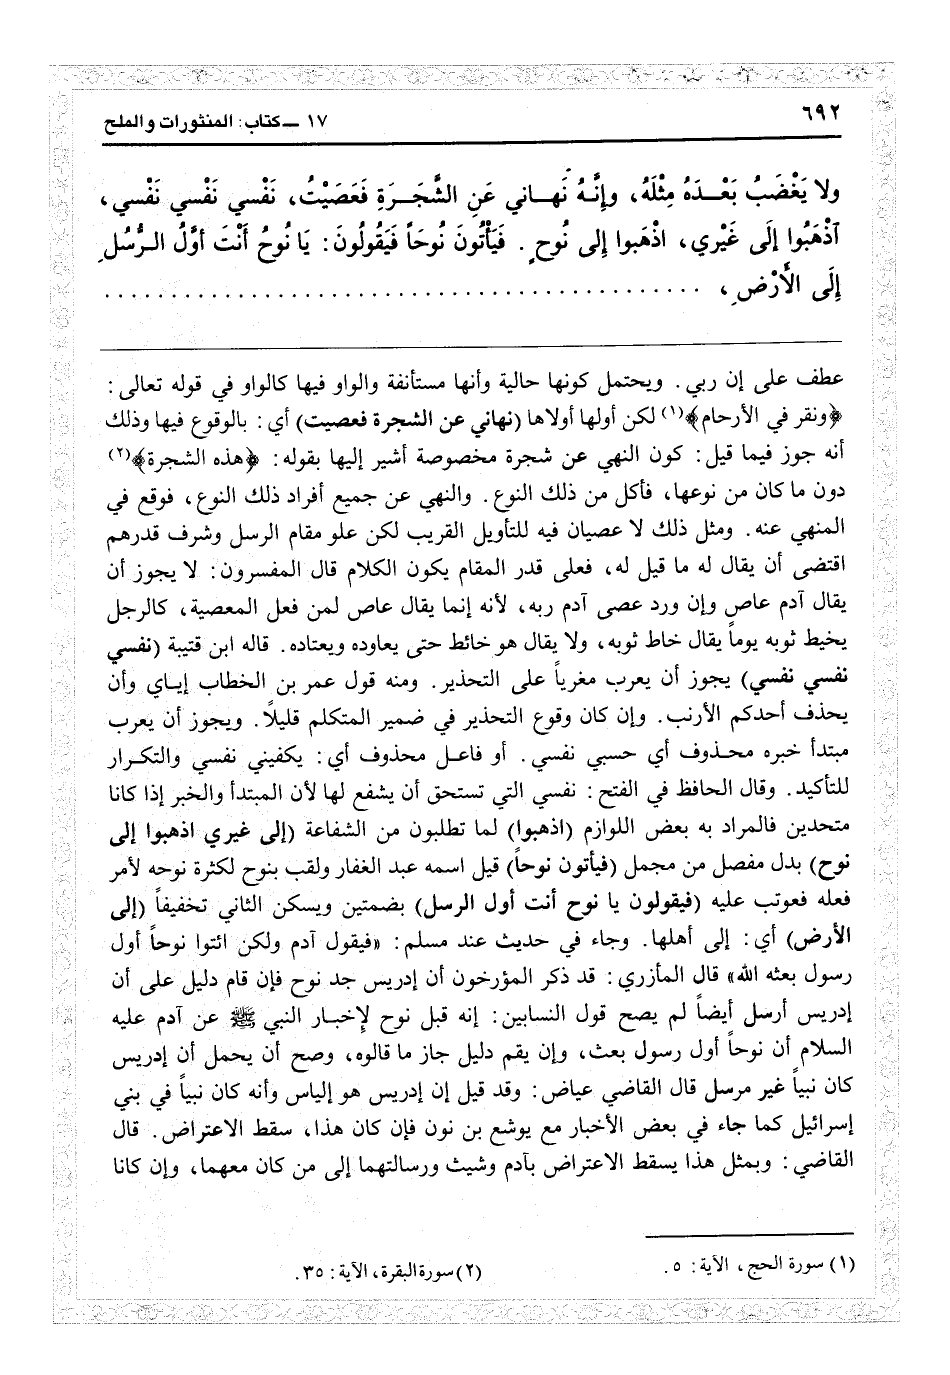 ٦٩٢
١٧ ــ كتاب: المنثورات والملح
ولا يَغْضَبُ بَعْـدَهُ مِثْلَهُ، وإنَّـهُ نَهـاني عَنِ الشَّجَـرَةِ فَعَصَيْتُ، نَفْسي نَفْسي نَفْسي،
اَذْهَبُوا إلَى غَيْري، اذْهَبوا إلى نُوحٍ. فَيَأْتُونَ نُوحَاً فَيَقُولُونَ: يَا نُوحُ أَنْتَ أوَّلُ الـرُّسُلِ
إلَى الأَرْضِ، . . . . . . . . . . . . . . . . . . . . . . . . . . . . . . . . . . . . . . . . . . . . .
عطف على إن ربي. ويحتمل كونها حالية وأنها مستأنفة والواو فيها كالواو في قوله تعالى:
﴿ونقر في الأرحام﴾(١) لكن أولها أولاها (نهاني عن الشجرة فعصيت) أي: بالوقوع فيها وذلك
أنه جوز فيما قيل: كون النهي عن شجرة مخصوصة أشير إليها بقوله: ﴿هذه الشجرة﴾(٢)
دون ما كان من نوعها، فأكل من ذلك النوع. والنهي عن جميع أفراد ذلك النوع، فوقع في
المنهي عنه. ومثل ذلك لا عصيان فيه للتأويل القريب لكن علو مقام الرسل وشرف قدرهم
اقتضى أن يقال له ما قيل له، فعلى قدر المقام يكون الكلام قال المفسرون: لا يجوز أن
يقال آدم عاص وإن ورد عصى آدم ربه، لأنه إنما يقال عاص لمن فعل المعصية، كالرجل
يخيط ثوبه يوماً يقال خاط ثوبه، ولا يقال هو خائط حتى يعاوده ويعتاده. قاله ابن قتيبة (نفسي
نفسي نفسي) يجوز أن يعرب مغرياً على التحذير. ومنه قول عمر بن الخطاب إيـاي وأن
يحذف أحدكم الأرنب. وإن كان وقوع التحذير في ضمير المتكلم قليلاً. ويجوز أن يعرب
مبتدأ خبره محـذوف أي حسبي نفسي. أو فاعـل محذوف أي: يكفيني نفسي والتكـرار
للتأكيد. وقال الحافظ في الفتح: نفسي التي تستحق أن يشفع لها لأن المبتدأ والخبر إذا كانا
متحدين فالمراد به بعض اللوازم (اذهبوا) لما تطلبون من الشفاعة (إلى غيري اذهبوا إلى
نوح) بدل مفصل من مجمل (فيأتون نوحاً) قيل اسمه عبد الغفار ولقب بنوح لكثرة نوحه لأمر
فعله فعوتب عليه (فيقولون يا نوح أنت أول الرسل) بضمتين ويسكن الثاني تخفيفاً (إلى
الأرض) أي: إلى أهلها. وجاء في حديث عند مسلم: «فيقول آدم ولكن ائتوا نوحاً أول
رسول بعثه الله» قال المأزري: قد ذكر المؤرخون أن إدريس جد نوح فإن قام دليل على أن
إدريس أرسل أيضاً لم يصح قول النسابين: إنه قبل نوح لإخبـار النبي ﷺ عن آدم عليه
السلام أن نوحاً أول رسول بعث، وإن يقم دليل جاز ما قالوه، وصح أن يحمل أن إدريس
كان نبياً غير مرسل قال القاضي عياض: وقد قيل إن إدريس هو إلياس وأنه كان نبياً في بني
إسرائيل كما جاء في بعض الأخبار مع يوشع بن نون فإن كان هذا، سقط الاعتراض. قال
القاضي: وبمثل هذا يسقط الاعتراض بآدم وشيث ورسالتهما إلى من كان معهما، وإن كانا
(١) سورة الحج، الآية: ٥.
(٢) سورة البقرة، الآية: ٣٥.